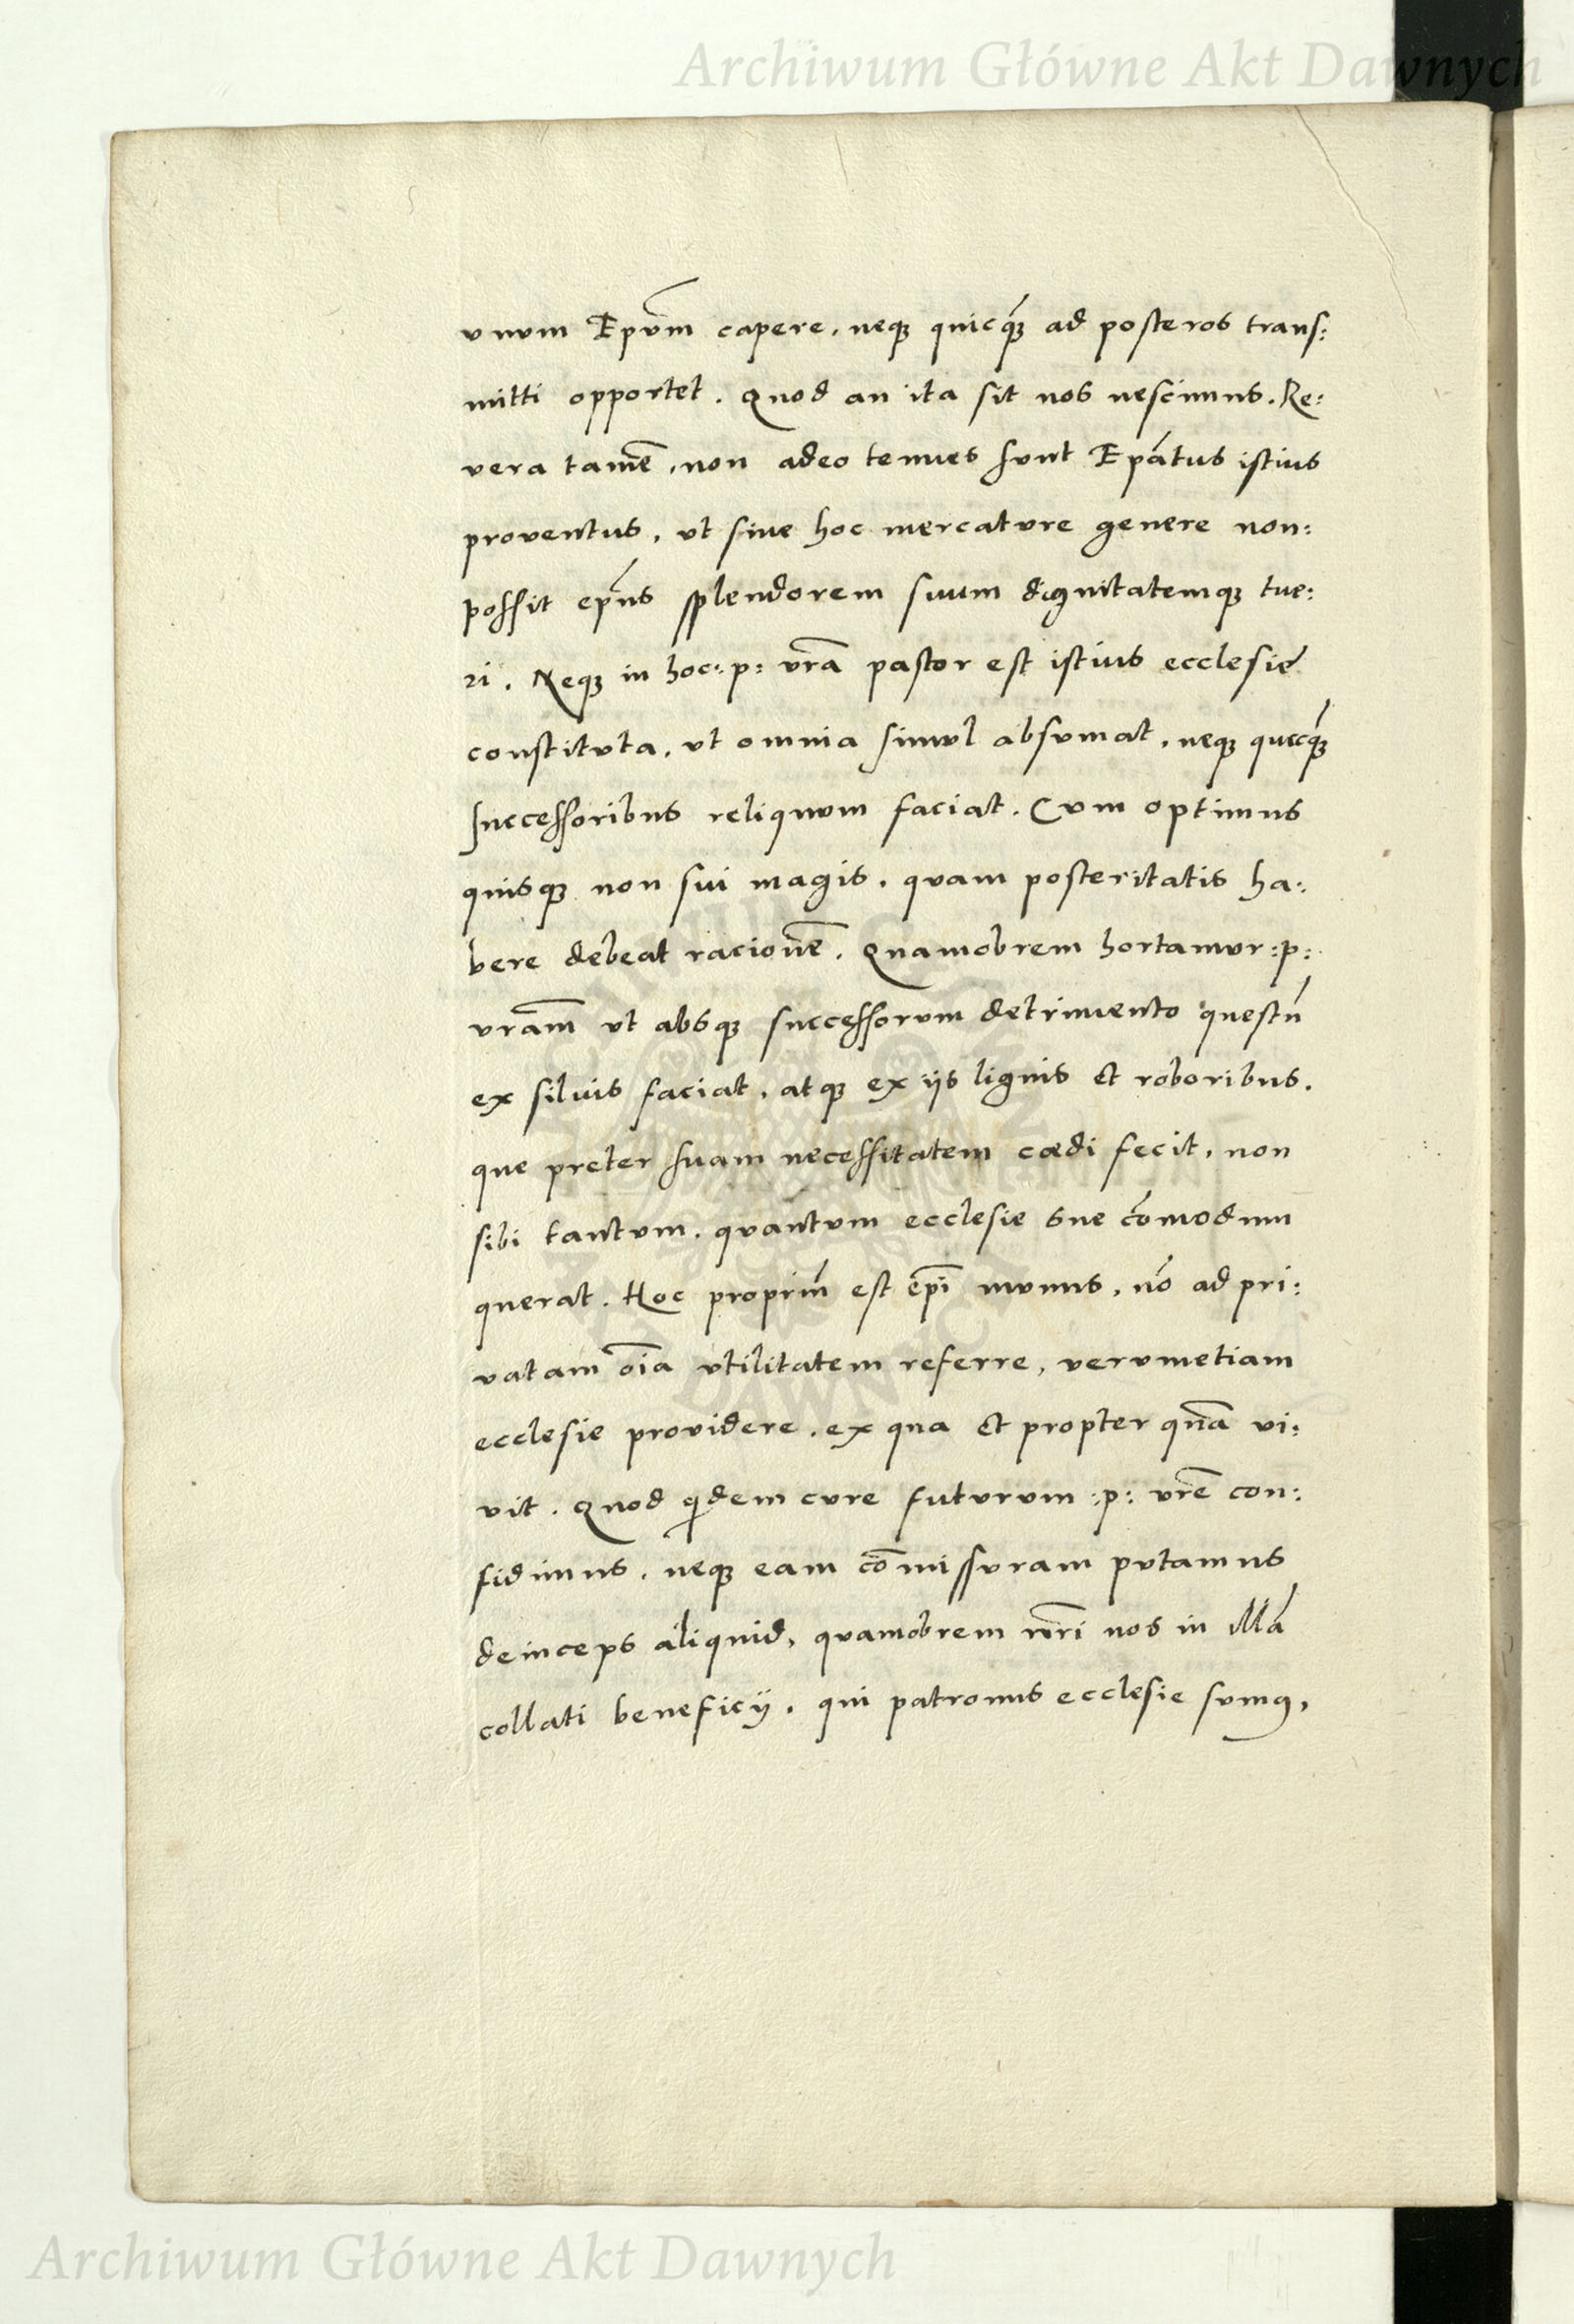 Archiwum Główne Akt Dawnych
vnvm Epvm̄ capere, neqꝫ quicq́ꝫ ad posteros trans:
mitti opportet. Quod an ita sit nos nescimus. Re:
vera tamē, non adeo tenues sunt Epātus istius
proventus, vt sine hoc mercatvre genere non:
possit ep̄us splendorem suum dignitatemqꝫ tue:
ri. Neqꝫ in hoc :p: vrā pastor est istius ecclesie
constitvta, vt omnia simvl absvmat, neqꝫ quicq́ꝫ
successoribus reliquvm faciat. Cvm optimus
quisqꝫ non sui magis, qvam posteritatis ha:
bere debeat racionē. Quamobrem hortamvr :p:
vrām vt absqꝫ successorvm detrimento questū
ex siluis faciat, atqꝫ ex ijs lignis et roboribus,
que preter suam necessitatem cædi fecit, non
sibi tantvm, qvantvm ecclesie sue cōmodum
querat. Hoc propriū est ep̄i mvnus, nō ad pri:
vatam oīa vtilitatem referre, vervmetiam
ecclesie providere, ex qua et propter quā vi:
vit. Quod qͥdem cvre futvrvm :p: vrē con:
fidimus, neqꝫ eam cōmissvram pvtamus
deinceps aliquid, qvamobrem nr̄i nos in illā
collati beneficij, qui patronus ecclesie svmꝰ,
Archiwum Główne Akt Dawnych